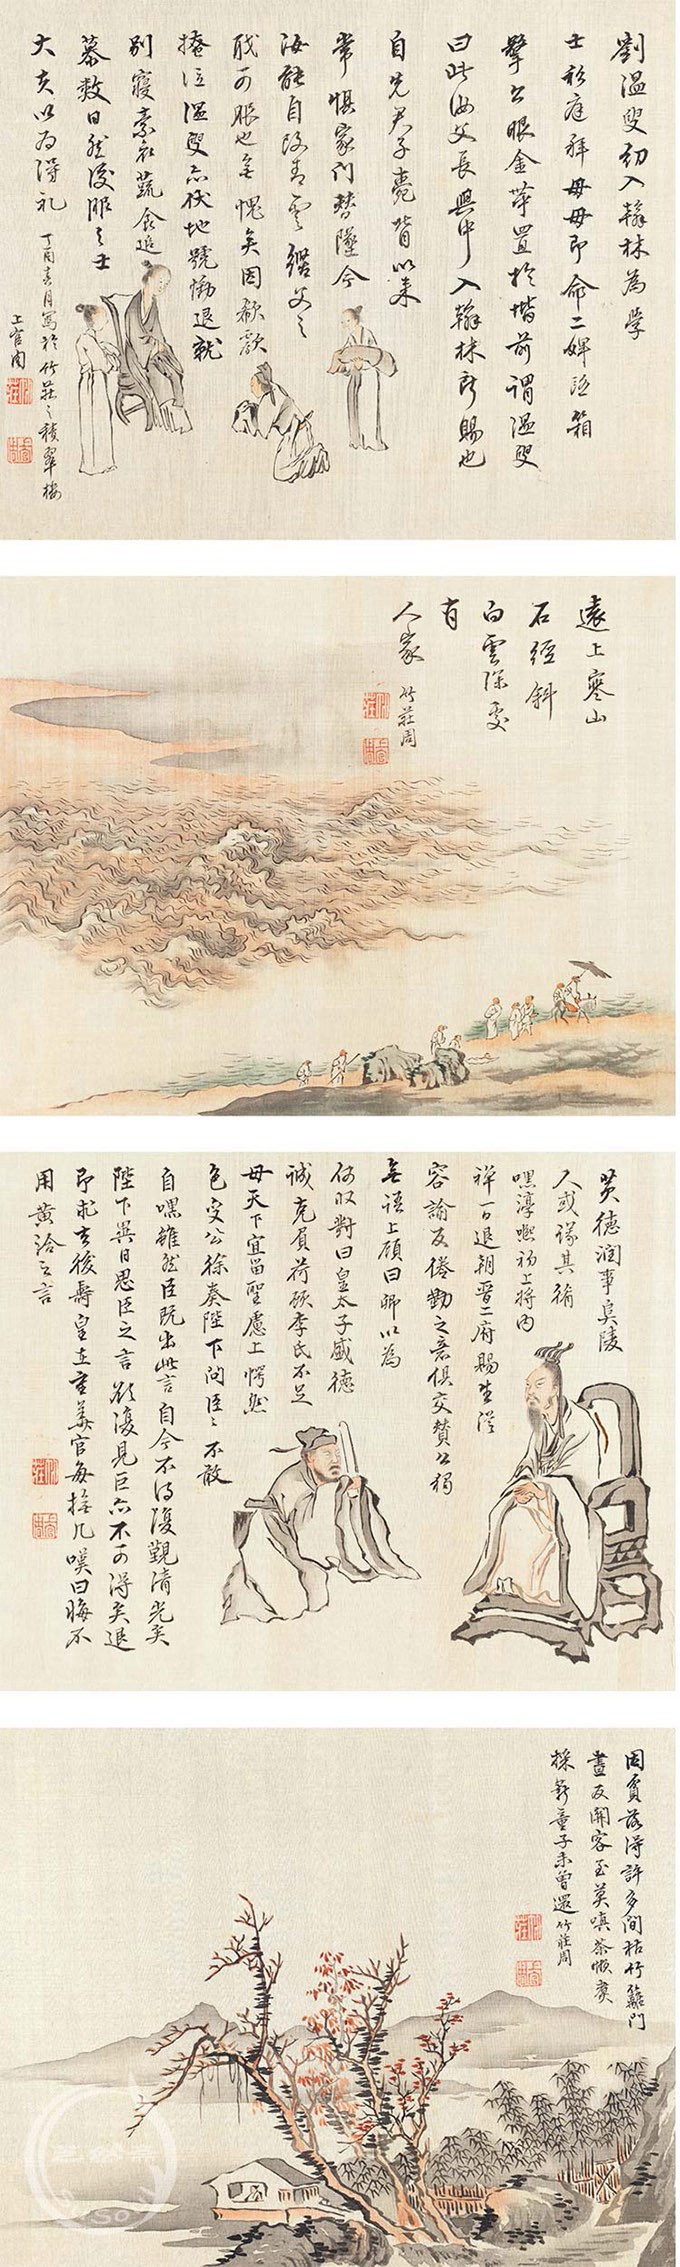 劉温叟幼入翰林為學
士於庭拜母母即命二婢酒箱
擎公服金带置於堦前謂温叟
曰此汝父長興中入翰林所賜也
自先君子薨背以来
常惧家门替墜今
汝能自致青雲繼父之
可服也無愧矣因欷歔
掩泣温叟亦伏地號慟退就
别寢素衣蔬食追
慕数日然後服之士
大夫以為得礼
丁酉春月寫於竹莊之積翠楼
上官周
遠上寒山
石徑斜
白雲深處
有
人家
竹莊周
黄德润事阜陵
人或議其循
嘿淳熙初上將内
禅一日退朝晋二府賜坐從
容諭及倦勤之意俱交賛公獨
無語上顧曰卿以為
何如對曰皇太子盛德
誠克負荷顧李氏不足
母天下宜留聖慮上愕然
色变公徐奏陛下问臣臣不敢
自嘿雖然臣既出此言自今不得復觀清光矣
陛下異日思臣之言欲復見臣亦不可得矣退
即求去後壽皇在重華宫每撫几嘆曰悔不
用黄洽之言
因貧落得許多閒枯竹籬门
盡友開客至莫嗔茶懒煮
採薪童子未曾還
竹莊周